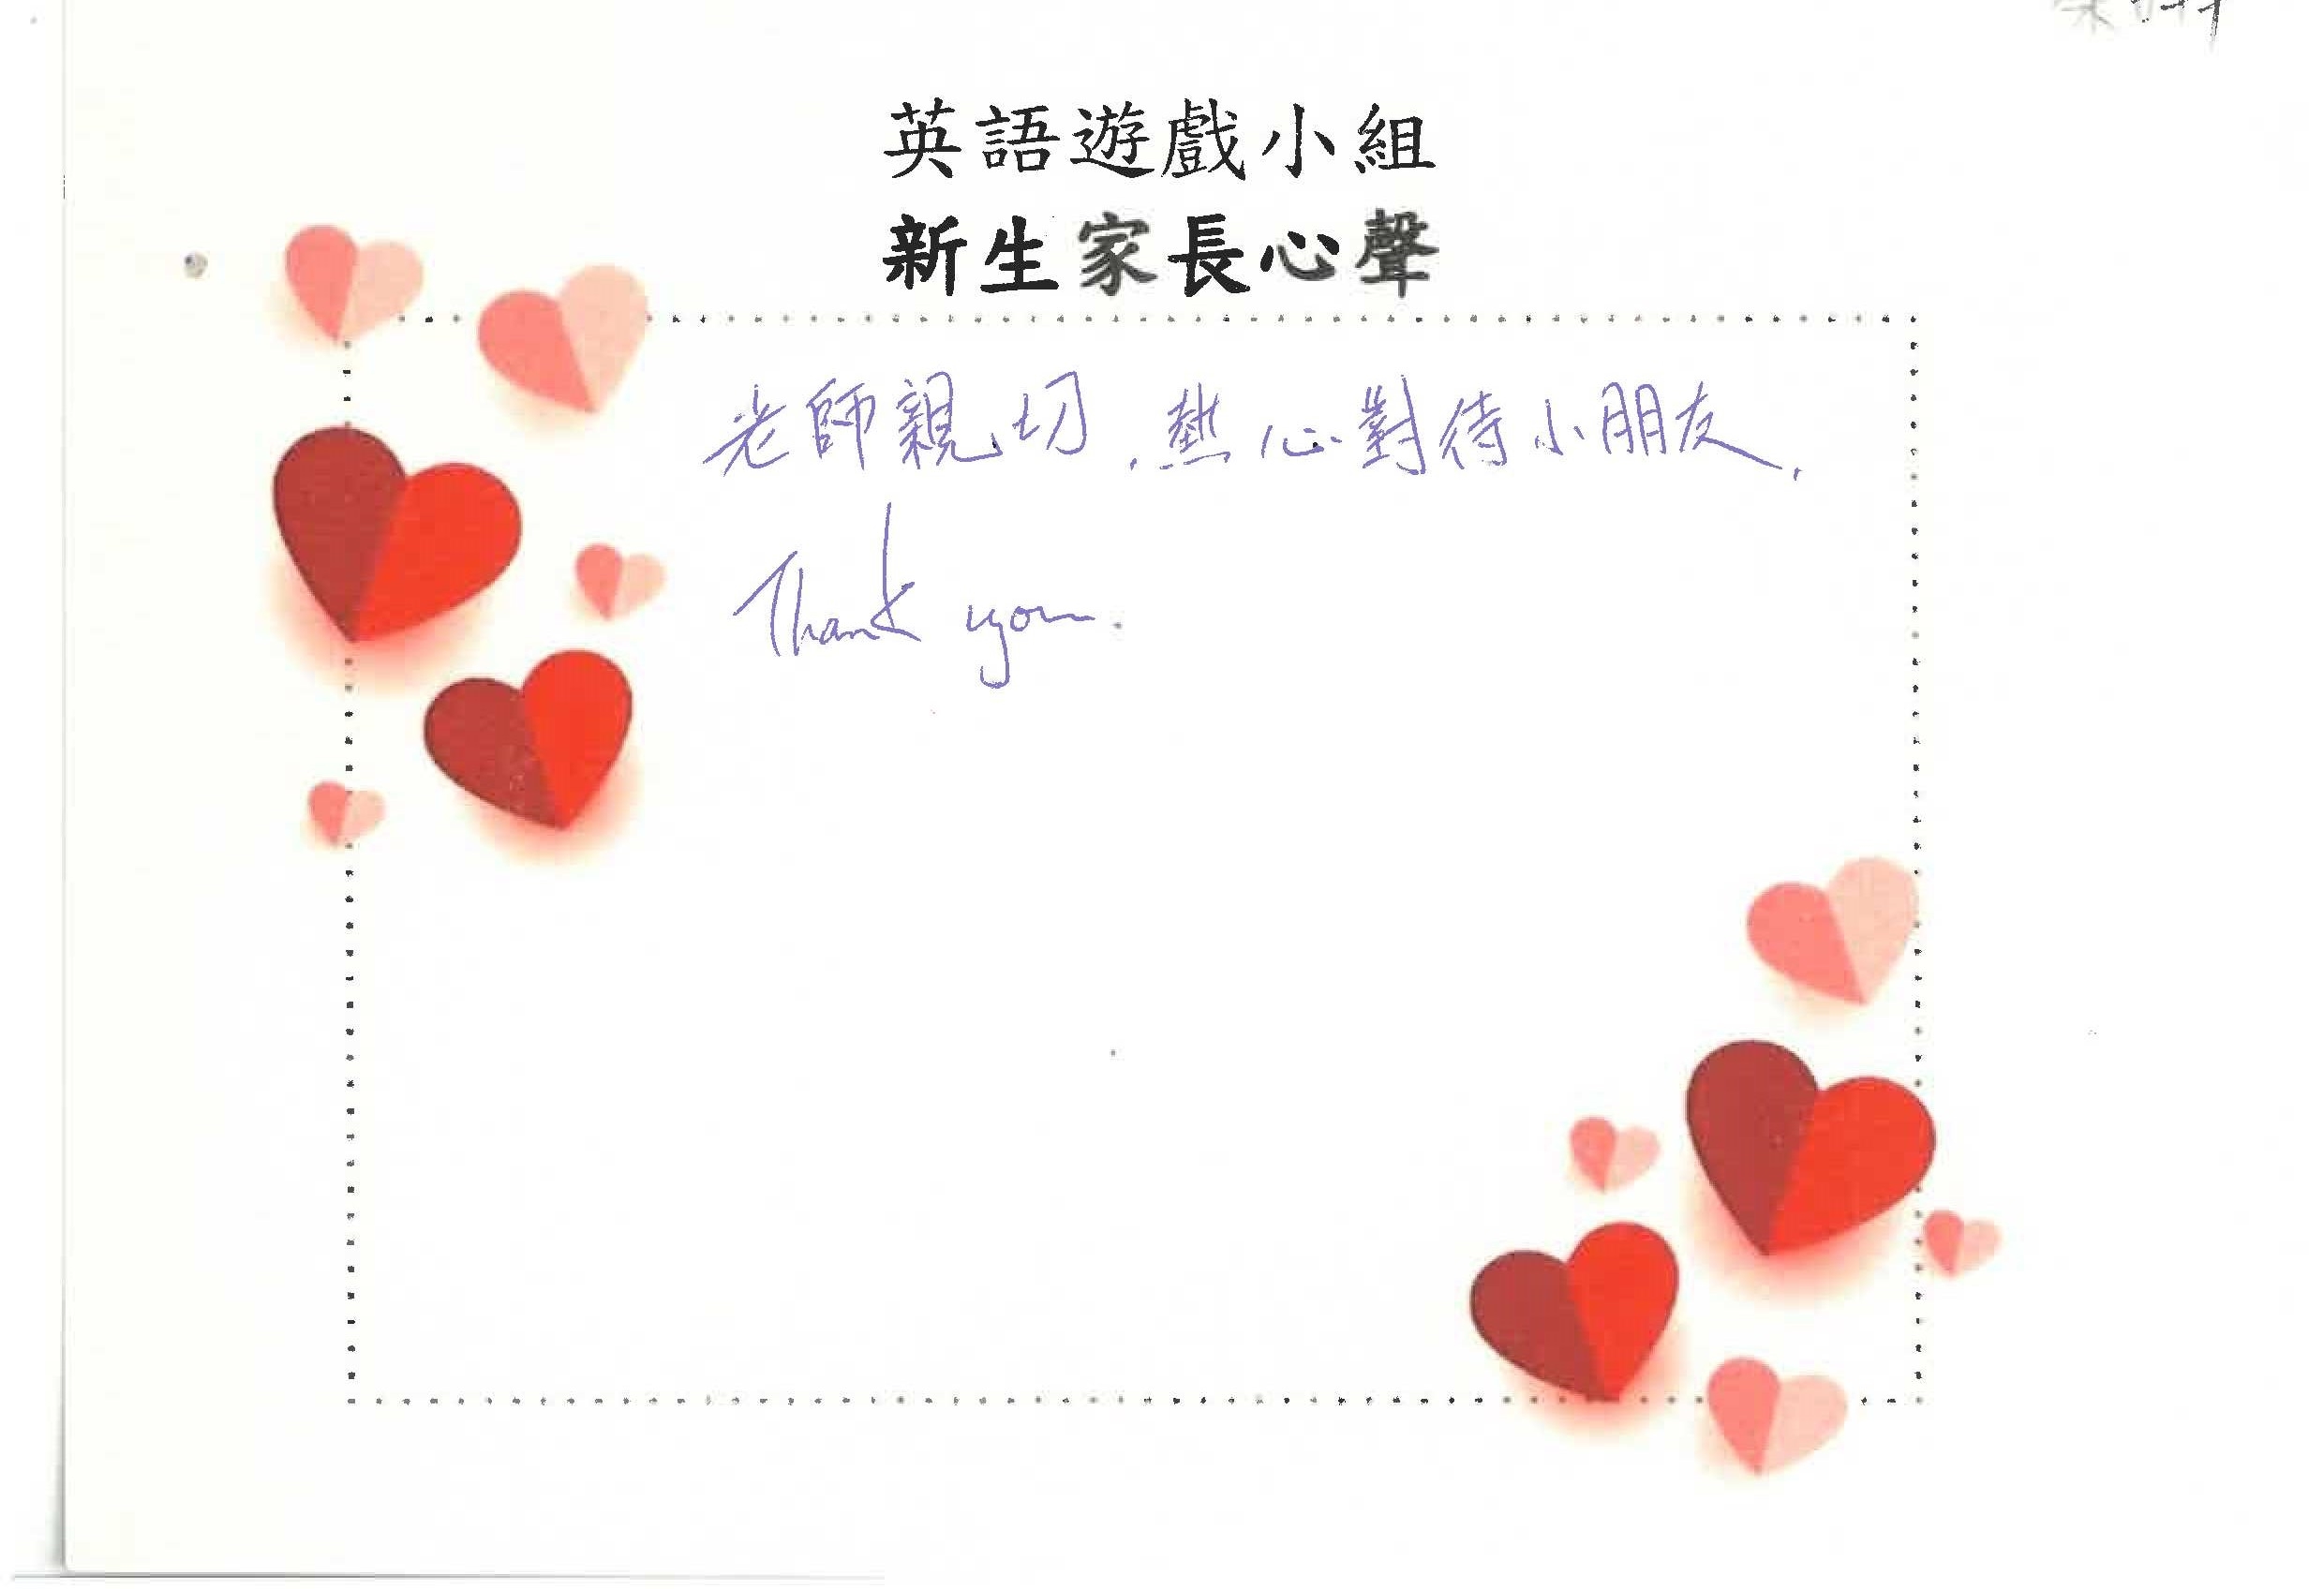 英語遊戲小組
新生家長心聲
老師親切，熱心對待小朋友，
Thank you.